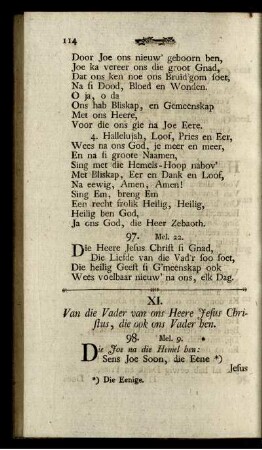 114
Door Joe ons nieuw' geboorn ben,
Joe ka vereer ons die groot Gnad,
Dat ons ken noe ons Bruid'gom soet,
Na si Dood, Bloed en Wonden.
O ja, o da
Ons hab Bliskap, en Gemeenskap
Met ons Heere,
Voor die ons gie na Joe Eere.
4. Hallelujah, Loof, Pries en Eer,
Wees na ons God, je meer en meer,
En na si groote Naamen,
Sing met die Hemels-Hoop nabov'
Met Bliskap, Eer en Dank en Loof,
Na eewig, Amen, Amen!
Sing Em, breng Em
Een recht frolik Heilig, Heilig,
Heilig ben God,
Ja ons God, die Heer Zebaoth.
97. Mel. 22.
Die Heere Jesus Christ si Gnad,
Die Liefde van die Vad'r soo soet,
Die heilig Geest si G'meenskap ook
Wees voelbaar nieuw' na ons, elk Dag.
XI.
Van die Vader van ons Heere Jesus Chri-
stus, die ook ons Vader ben.
98. Mel. 9.
Die Jos na die Hemel ben:
Sens Joe Soon, die Eene *)
Jesus
*) Die Eenige.